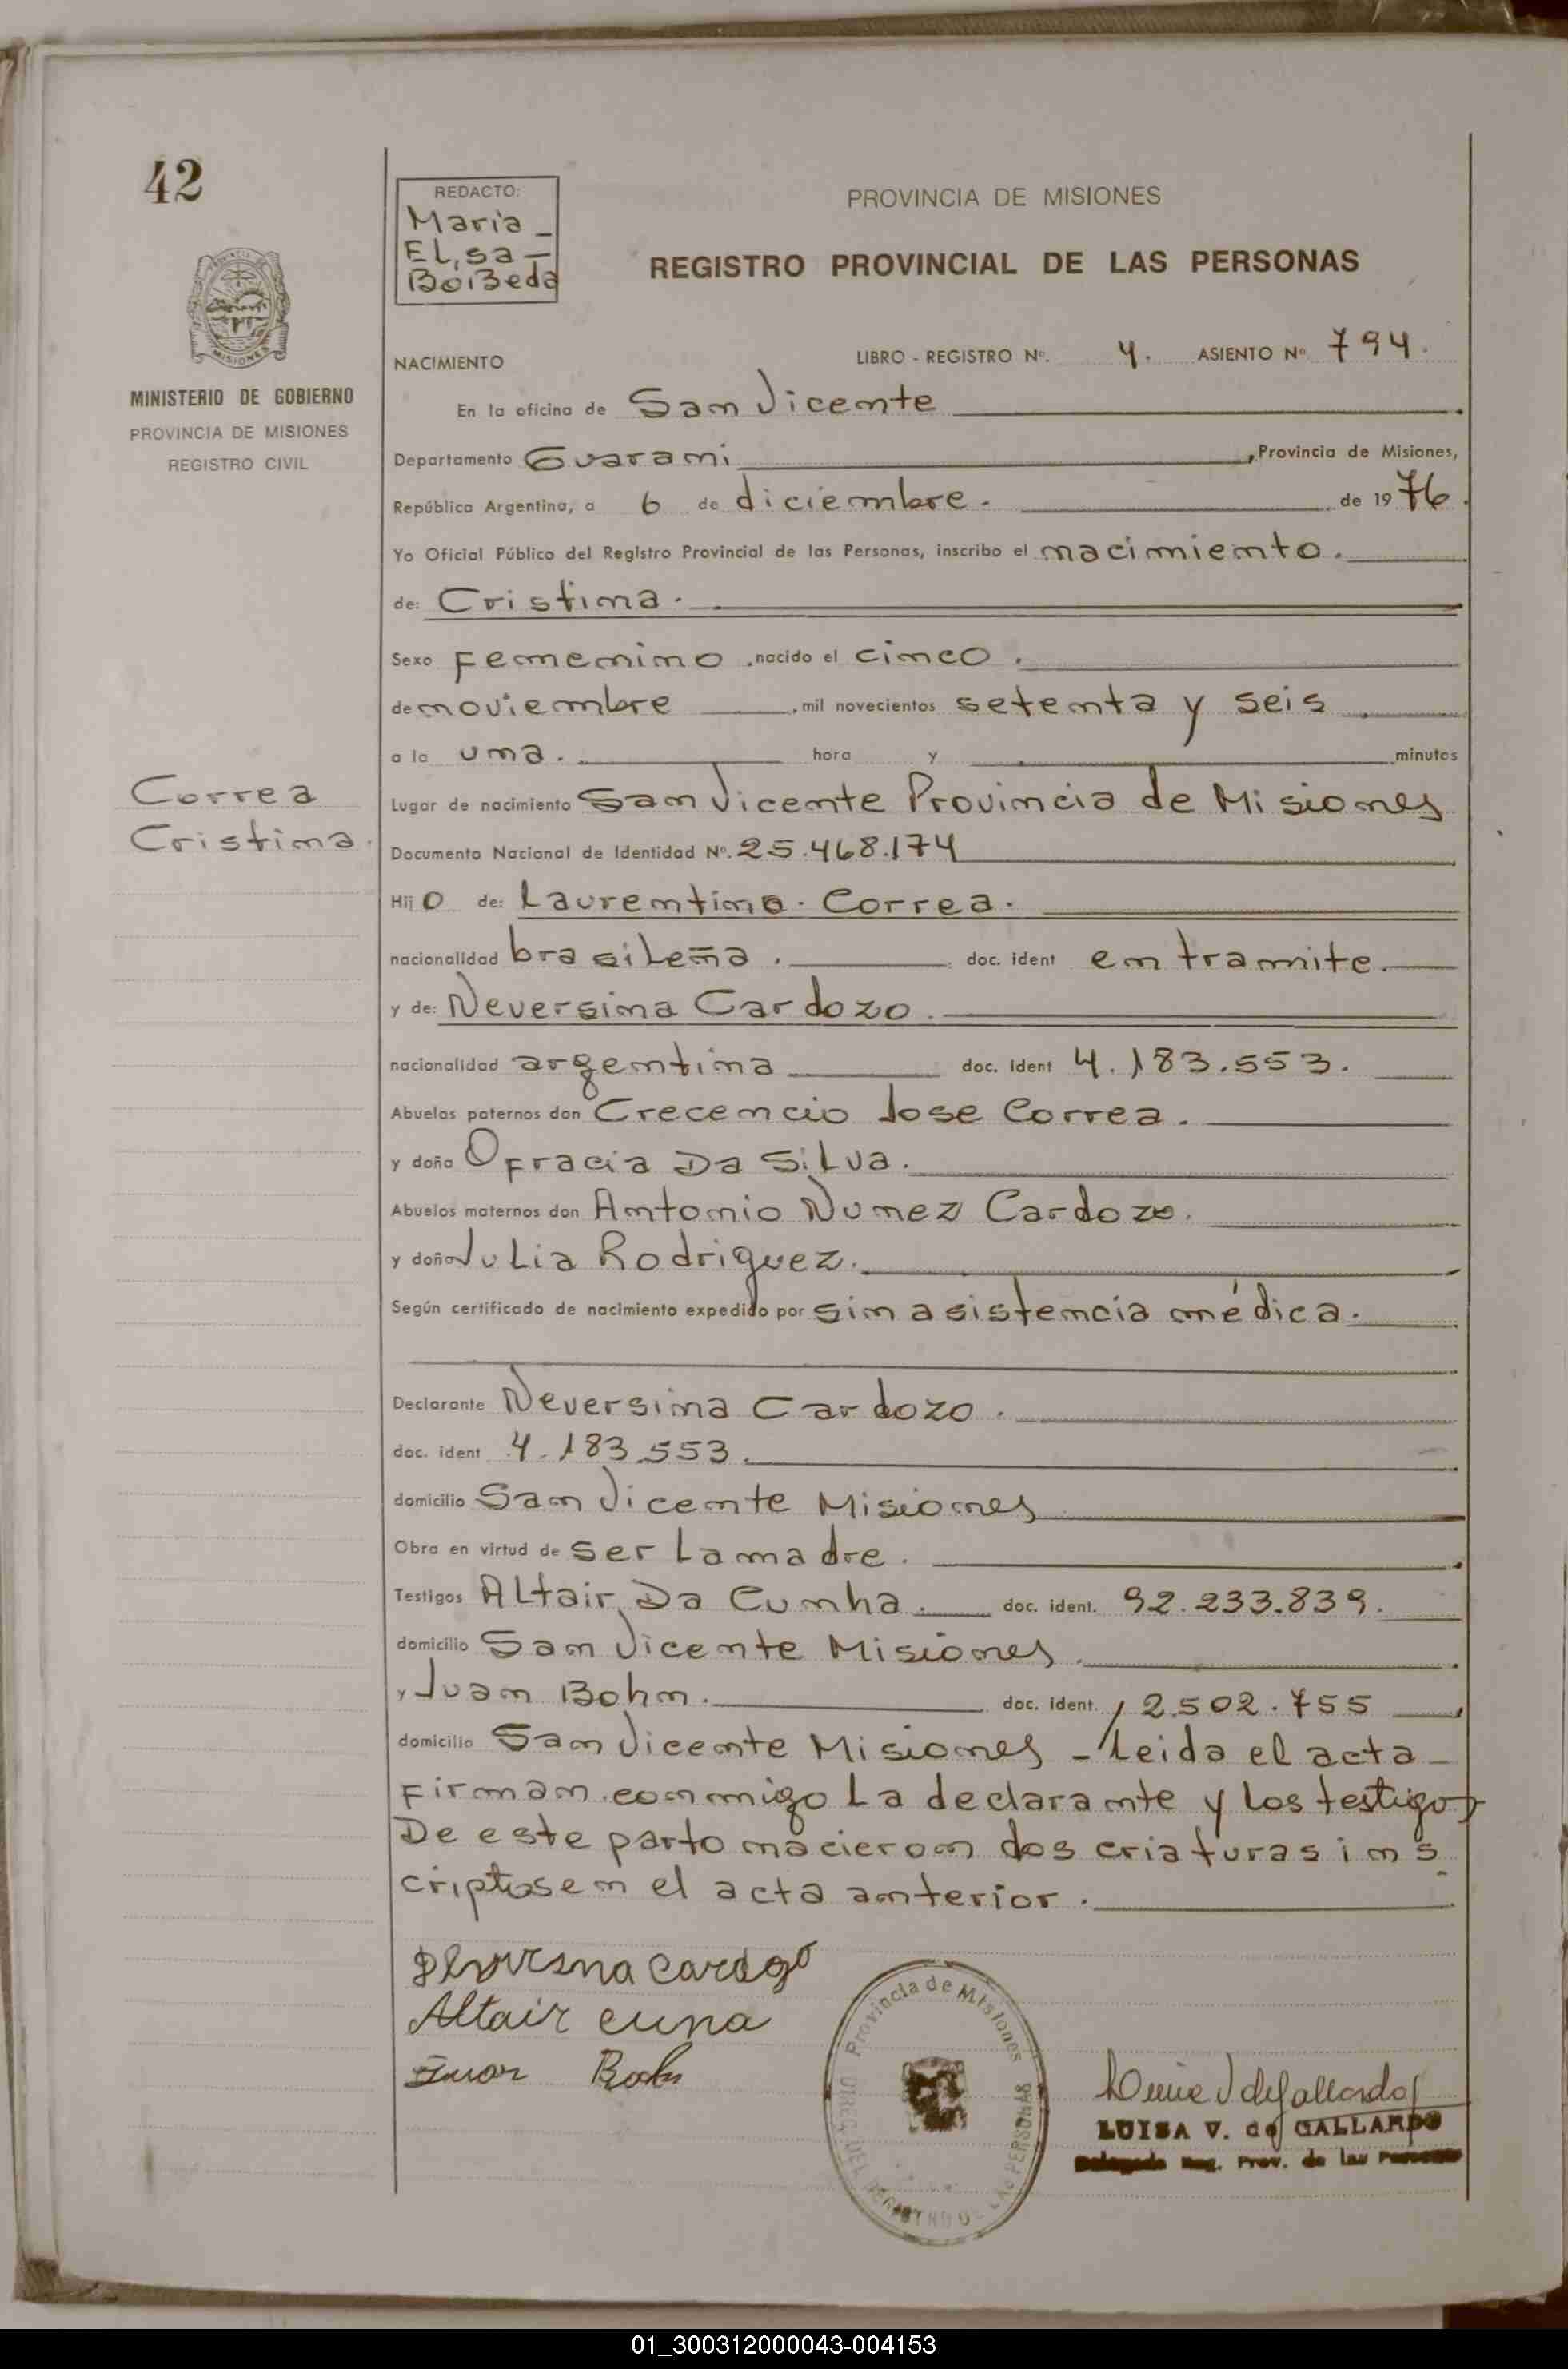 42
REDACTO:
Maria
ELisa
BoiBeda
PROVINCIA DE MISIONES
REGISTRO PROVINCIAL DE LAS PERSONAS
MISIONES
MINISTERIO DE GOBIERNO
PROVINCIA DE MISIONES
REGISTRO CIVIL
NACIMIENTO LIBRO - REGISTRO Nº. 4. ASIENTO Nº 794.
En la oficina de San Vicente
Departamento Guarani, Provincia de Misiones,
República Argentina, a 6 de diciembre. de 1976.
Yo Oficial Público del Registro Provincial de las Personas, inscribo el nacimiento.
de: Cristina.
Sexo Femenino, nacido el cinco.
de noviembre, mil novecientos setenta y seis
a la una. hora y minutos
Correa
Cristina.
Lugar de nacimiento San Vicente Provincia de Misiones
Documento Nacional de Identidad Nº. 25.468.174
Hijo de: Laurentino. Correa.
nacionalidad brasileña. doc. ident en tramite.
y de: Neversina Cardozo.
nacionalidad argentina doc. ident 4.183.553.
Abuelos paternos don Crecencio Jose Correa.
y doña Ofracia Da Silva.
Abuelos maternos don Antonio Nunez Cardozo.
y doña Julia Rodriguez.
Según certificado de nacimiento expedido por sin asistencia médica.
Declarante Neversina Cardozo.
doc. ident 4.183.553.
domicilio San Vicente Misiones
Obra en virtud de ser La madre.
Testigos Altair Da Cunha. doc. ident. 92.233.839.
domicilio San Vicente Misiones.
y Juan Bohn. doc. ident. 2.502.755
domicilio San Vicente Misiones - Leida el acta
Firman conmigo La declarante y los testigos
De este parto nacieron dos criaturas ins
criptas en el acta anterior.
Altair cuna
Juan Bohn
Provincia de Misiones
DIREC. DEL REGISTRO DE LAS PERSONAS
LUISA V. de GALLARDO
Delegada Reg. Prov. de las Personas
01_300312000043-004153